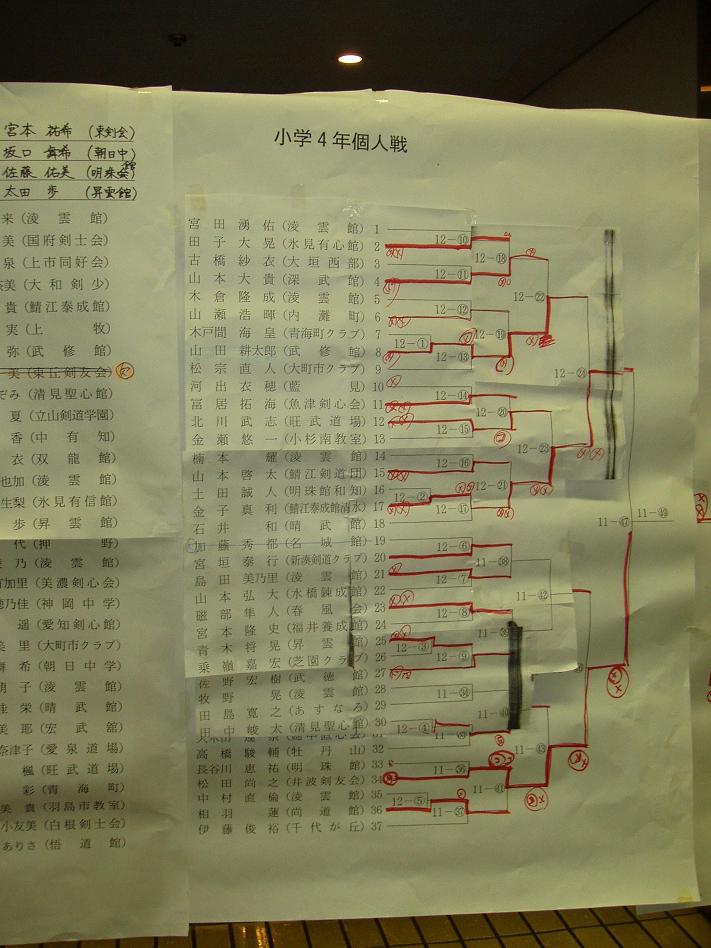 宮本 祐希 (東剣会)
坂口 舞希 (朝日中)
佐藤 佑美 (明珠会)
太田 歩 (昇雲館)
来 (淩雲館)
美 (国府剣士会)
泉 (上市同好会)
美 (大和剣少)
貴 (鯖江泰成館)
実 (上牧)
弥 (武修館)
美 (東丘剣友会)
ぞみ (清見聖心館)
夏 (立山剣道学園)
香 (中有知)
衣 (双龍館)
也加 (淩雲館)
生梨 (氷見有信館)
歩 (昇雲館)
代 (押野)
乃 (淩雲館)
加里 (美濃剣心会)
乃佳 (神岡中学)
遥 (愛知剣心館)
里 (大町市クラブ)
希 (朝日中学)
子 (淩雲館)
栄 (晴武館)
耶 (宏武舘)
奈津子 (愛泉道場)
楓 (旺武道場)
彩 (青海町)
美貴 (羽島市教室)
小友美 (白根剣士会)
ありさ (悟道館)
小学4年個人戦
宮田湧佑 (淩雲館) 1
田子大晃 (氷見有心館) 2
古橋紗衣 (大垣西部) 3
山本大貴 (深武館) 4
木倉隆成 (淩雲館) 5
山瀬浩暉 (内灘町) 6
木戸間海皇 (青海町クラブ) 7
山田耕太郎 (武修館) 8
松宗直人 (大町市クラブ) 9
河出衣穂 (藍見) 10
冨居拓海 (魚津剣心会) 11
北川武志 (旺武道場) 12
金瀬悠一 (小杉南教室) 13
楠本耀 (淩雲館) 14
山本啓太 (鯖江剣道団) 15
土田誠人 (明珠館和知) 16
金子真利 (鯖江泰成館清水) 17
石井和 (晴武館) 18
加藤秀都 (名城館) 19
宮垣泰行 (新湊剣道クラブ) 20
島田美乃里 (淩雲館) 21
山本弘大 (水橋錬成館) 22
磯部隼人 (春風会) 23
宮本隆史 (福井養成館) 24
青木将晃 (昇雲館) 25
乗嶺嘉宏 (芝園クラブ) 26
佐野宏樹 (武徳館) 27
牧野晃 (淩雲館) 28
田島寛之 (あすなろ) 29
田中峻太 (清見聖心館) 30
31
高橋駿輔 (牡丹山) 32
長谷川恵祐 (明珠館) 33
松田尚之 (井波剣友会) 34
中村直倫 (淩雲館) 35
相羽蓮 (尚道館) 36
伊藤俊裕 (千代が丘) 37
12-⑩
12-⑱
12-⑪
12-㉒
12-⑫
12-①
12-⑲
12-⑬
12-㉔
12-⑭
12-⑳
12-⑮
12-㉓
12-⑯
12-②
12-㉑
12-⑰
11-㊼
11-㊾
12-⑥
11-㊳
12-⑦
11-㊷
12-⑧
12-③
12-⑨
11-㉞
12-④
11-㊸
11-㊱
11-㊶
12-⑤
11-㊲